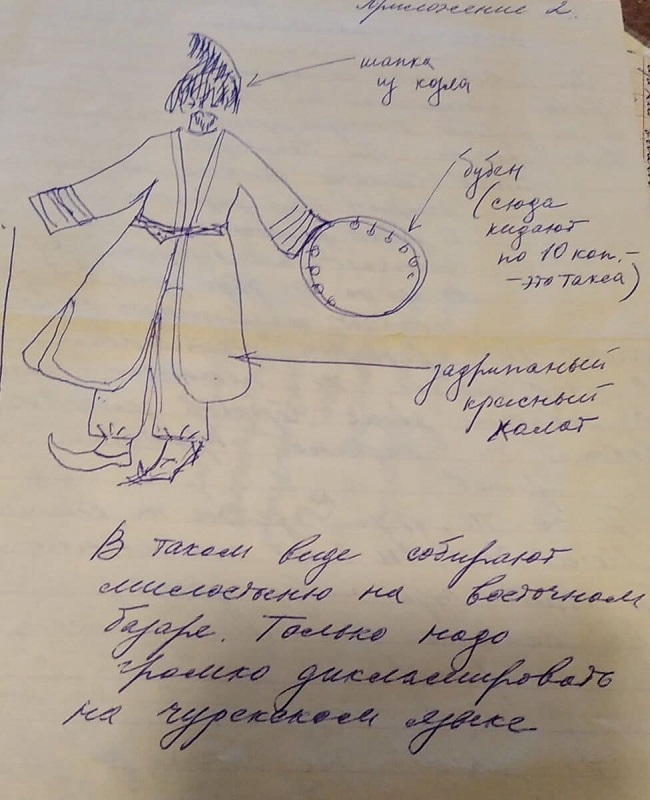 Приложение 2.
шапка
из козла
бубен
(сюда
кидают
по 10 коп. –
– это такса)
задрипаный
красный
халат
В таком виде собирают
милостыню на восточном
базаре. Только надо
громко дикламировать
на чурекском языке